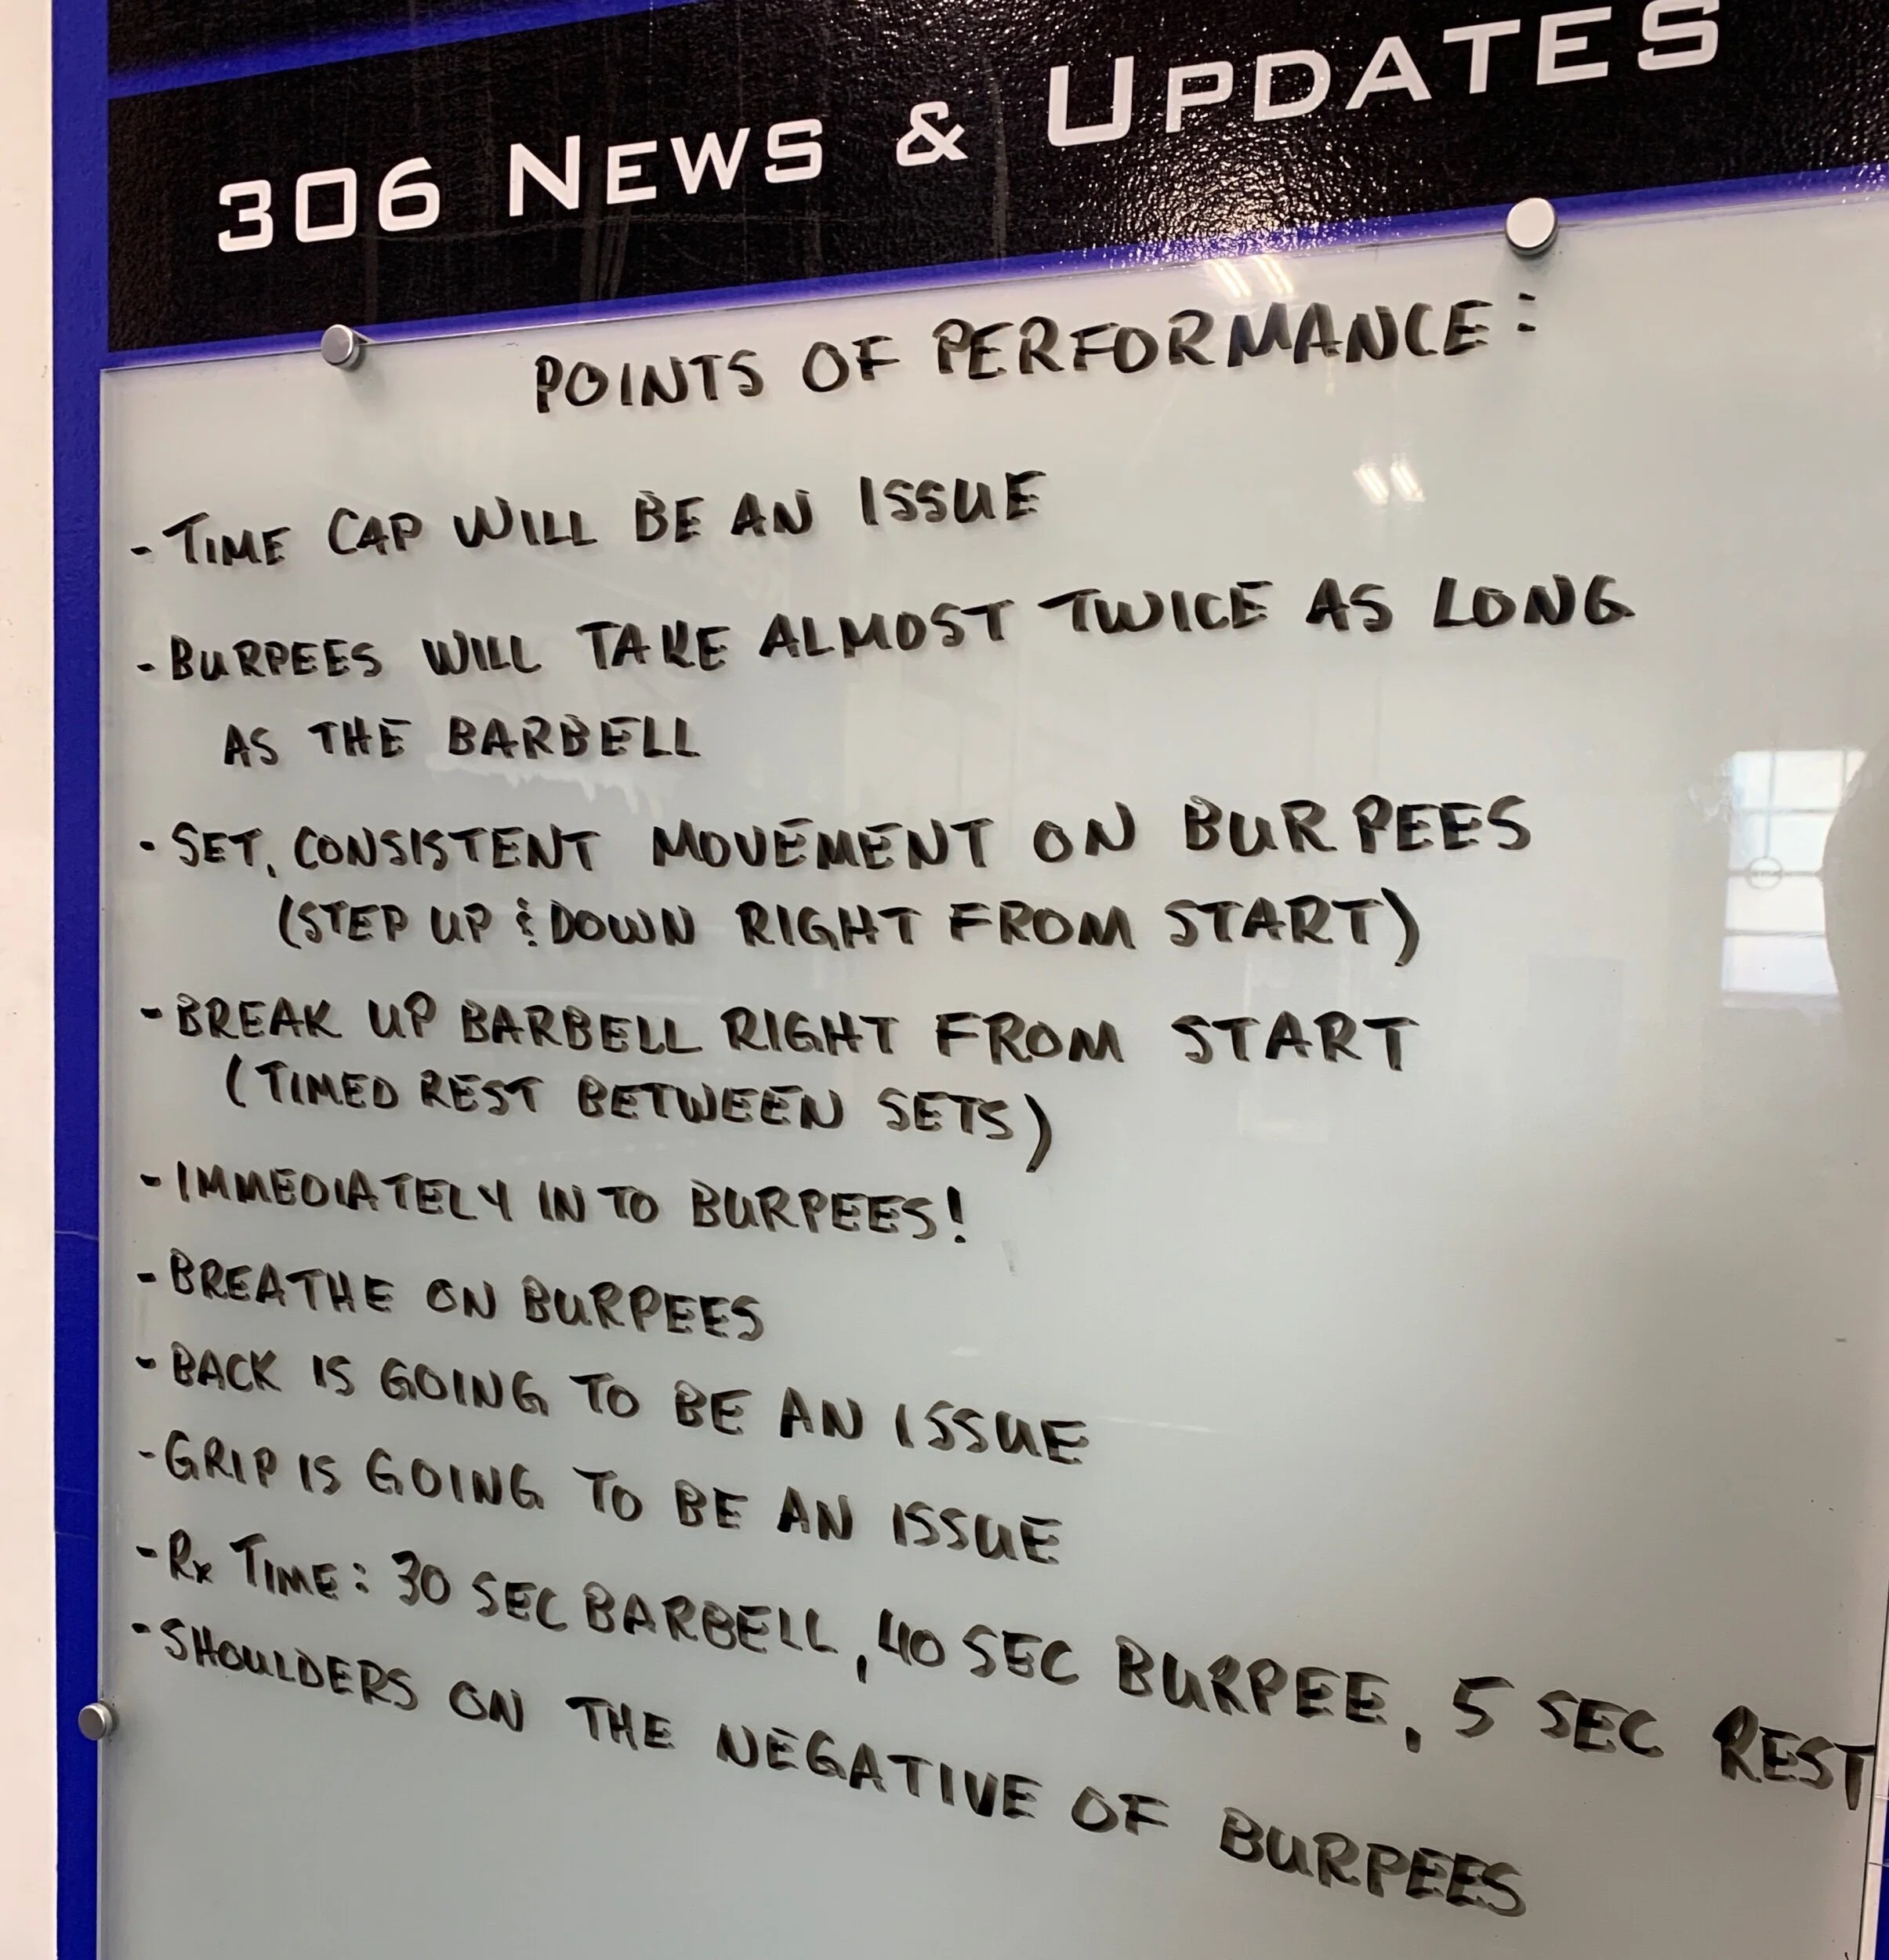 306 NEWS & UPDATES
POINTS OF PERFORMANCE:
- TIME CAP WILL BE AN ISSUE
- BURPEES WILL TAKE ALMOST TWICE AS LONG
AS THE BARBELL
- SET, CONSISTENT MOVEMENT ON BURPEES
(STEP UP & DOWN RIGHT FROM START)
- BREAK UP BARBELL RIGHT FROM START
(TIMED REST BETWEEN SETS)
- IMMEDIATELY IN TO BURPEES!
- BREATHE ON BURPEES
- BACK IS GOING TO BE AN ISSUE
- GRIP IS GOING TO BE AN ISSUE
- Rx TIME: 30 SEC BARBELL, 40 SEC BURPEE, 5 SEC REST
- SHOULDERS ON THE NEGATIVE OF BURPEES